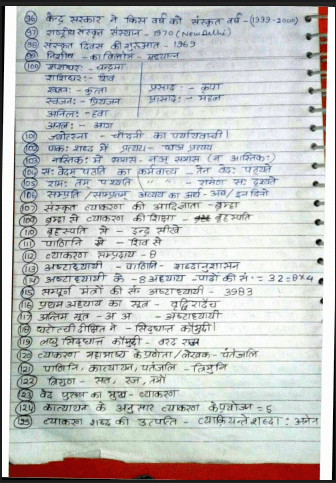 (96) केन्द्र सरकार ने किस वर्ष को संस्कृत वर्ष - (1999-2000)
(97) राष्ट्रीय संस्कृत संस्थान - 1970 (New Delhi)
(98) संस्कृत दिवस की शुरुआत - 1969
(99) निशीथ - का विलोम - मध्याह्न
(100) शशधर: - चन्द्रमा
शशिधर: - शिव
श्वान: - कुत्ता प्रसाद: - कृपा
स्वजन: - प्रियजन प्रासाद: - महल
अनिल: - हवा
अनल: - आग
(101) ज्योत्सना - चाँदनी का पर्यायवाची।
(102) पाक: शब्द में प्रत्यय - घञ् प्रत्यय
(103) नास्तिक: में समास - नञ् समास (न आस्तिक:)
(104) स: वेदम् पठति का कर्मवाच्य - तेन वेद: पठ्यते
(105) राम: तम् पश्यति ( " " - रामेण स: दृश्यते
(106) सम्प्रति/साम्प्रतम् अव्यय का अर्थ - अब/इन दिनों
(107) संस्कृत व्याकरण को आदिज्ञाता - ब्रह्मा
(109) ब्रह्मा से व्याकरण की शिक्षा - बृहस्पति
(110) बृहस्पति से - इन्द्र सीखे
(111) पाणिनि ने - शिव से
(112) व्याकरण सम्प्रदाय - 8
(113) अष्टाध्यायी - पाणिनि - शब्दानुशासन
(114) अष्टाध्यायी के - 8 अध्याय - पादों की सं. = 32 = 8×4
(115) सम्पूर्ण सूत्रों की सं. अष्टाध्यायी - 3983
(116) प्रथम अध्याय का सूत्र - वृद्धिरादैच्
(117) अन्तिम सूत्र - अ अ - अष्टाध्यायी
(118) भट्टोजी दीक्षित ने - सिद्धान्त कौमुदी।
(119) लघु सिद्धान्त कौमुदी - वरदराज
(120) व्याकरण महाभाष्य के प्रणेता/लेखक - पतंजलि
(121) पाणिनि, कात्यायन, पतंजलि - त्रिमुनि
(122) त्रिगुण - सत, रज, तमो
(123) वेद पुरुष का मुख - व्याकरण
(124) कात्यायन के अनुसार व्याकरण के प्रयोजन = 5
(125) व्याकरण शब्द की उत्पत्ति - व्याक्रियन्ते शब्दा: अनेन